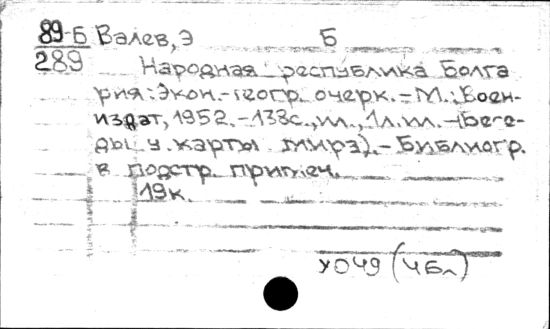 89-Б Валев, Э Б
289
Народная республика Болга
рия: Экон.-геогр. очерк.=М.: Воен-
издат, 1952.-138с., ил., 1л.ил.-(Бесе-
ды у карты мира).-Библиогр.
в подстр. примеч.
19к.
У049 (4Бл)